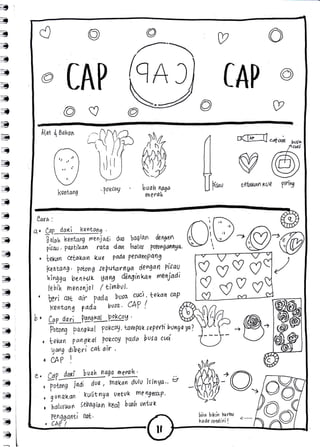 CAP
CAP
CAP
Alat & Bahan
kentang
pokcoy
buah naga
merah
pisau
cetakan kue
piring
cat air
busa
cuci
Cara :
a. Cap dari kentang.
Belah kentang menjadi dua bagian dengan
pisau. pastikan rata dan halus potongannya.
• tekan cetakan kue pada penampang
kentang. potong seputarnya dengan pisau
hingga bentuk yang diinginkan menjadi
lebih menonjol / timbul.
• beri cat air pada busa cuci, tekan cap
kentang pada busa. CAP !
b. Cap dari Pangkal pokcoy.
Potong pangkal pokcoy, tampak seperti bunga ya?
• tekan pangkal pokcoy pada busa cuci
yang diberi cat air.
• CAP !
c. Cap dari buah naga merah.
• potong jadi dua, makan dulu isinya..
• gunakan kulitnya untuk mengecap.
• haluskan sebagian kecil buah untuk
pengganti cat.
• CAP !
bisa bikin kertas
kado sendiri !
11